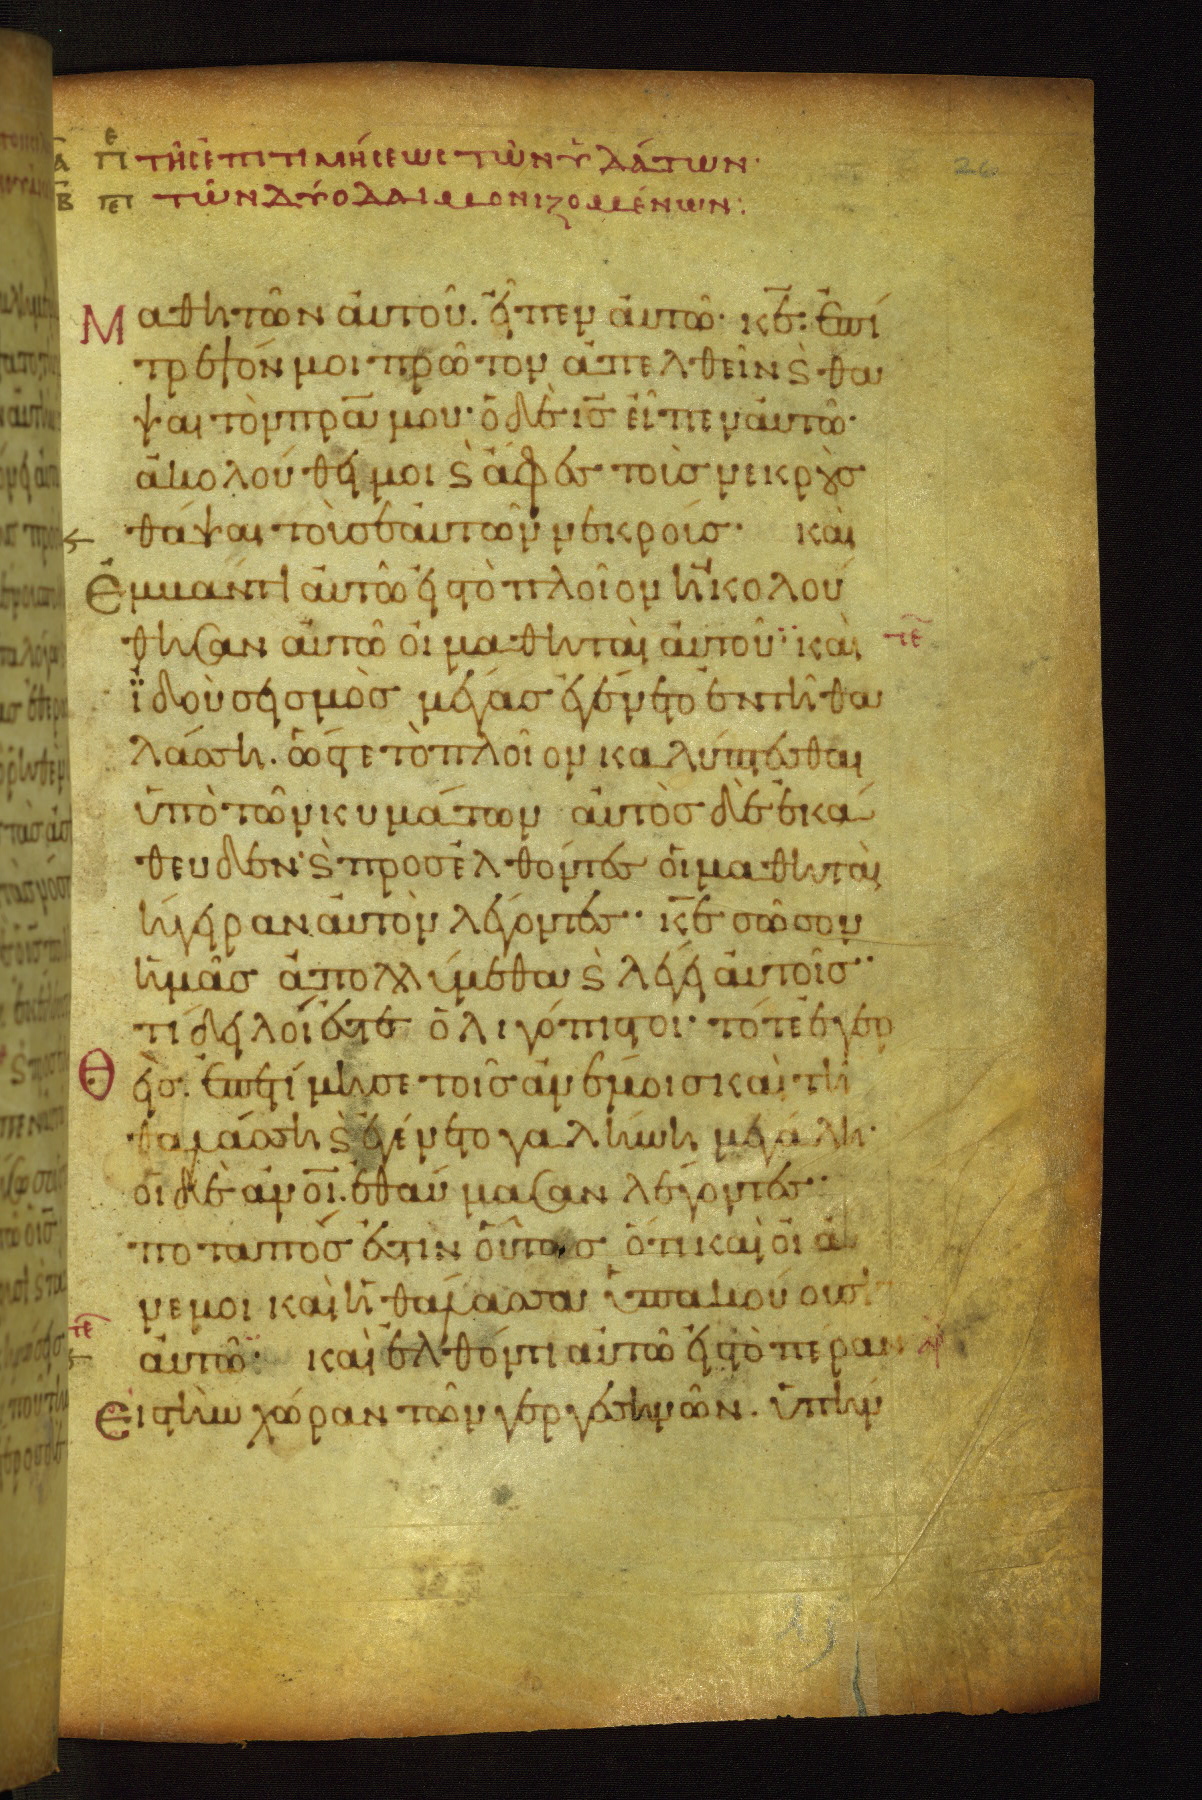 ΙΑ ΠΕ τῆς ἐπιτιμήσεως τῶν ὑδάτων·
ΙΒ ΠΕ τῶν δύο δαιμονιζομένων:
Μαθητῶν αὐτοῦ. εἶπεν αὐτῶ· κε̅· ἐπί
τρεψόν μοι πρῶτον ἀπελθεῖν ϗ θα
ψαι τὸν πρ̅α μου· ὁ δὲ ις̅ εἶπεν αὐτῶ·
ἀκολούθει μοι ϗ ἄφες τοὺς νεκροὺς
θάψαι τοὺς ἑαυτῶν νεκρούς· καὶ
Ἐμβάντι αὐτῶ εἰς τὸ πλοῖον ἠκολού
θησαν αὐτῶ οἱ μαθηταὶ αὐτοῦ·· καὶ τε̅
ἰδοὺ σεισμὸς μέγας ἐγένετο ἐν τῆ θα
λάσση. ὥστε τὸ πλοῖον καλύπτεσθαι
ὑπὸ τῶν κυμάτων αὐτὸς δὲ ἐκά
θευδεν· ϗ προσελθόντες οἱ μαθηταὶ
ἤγειραν αὐτὸν λέγοντες·· κε̅ σῶσον
ἡμᾶς ἀπολλύμεθα ϗ λέγει αὐτοῖς··
τί δειλοί ἐστε ὀλιγόπιστοι· τότε ἐγερ
Θεὶς. ἐπετίμησε τοῖς ἀνέμοις καὶ τῆ
θαλάσση ϗ ἐγένετο γαλήνη μεγάλη·
οἱ δὲ ἀνοι̅. ἐθαύμασαν λέγοντες··
ποταπός ἐστιν οὗτος ὅτι καὶ οἱ ἄ
νεμοι καὶ ἡ θάλασσα ὑπακούουσιν
τε̅ αὐτῶ· καὶ ἐλθόντι αὐτῶ εἰς τὸ πέραν
Εἰς τὴν χώραν τῶν γεργεσηνῶν. ὑπήν